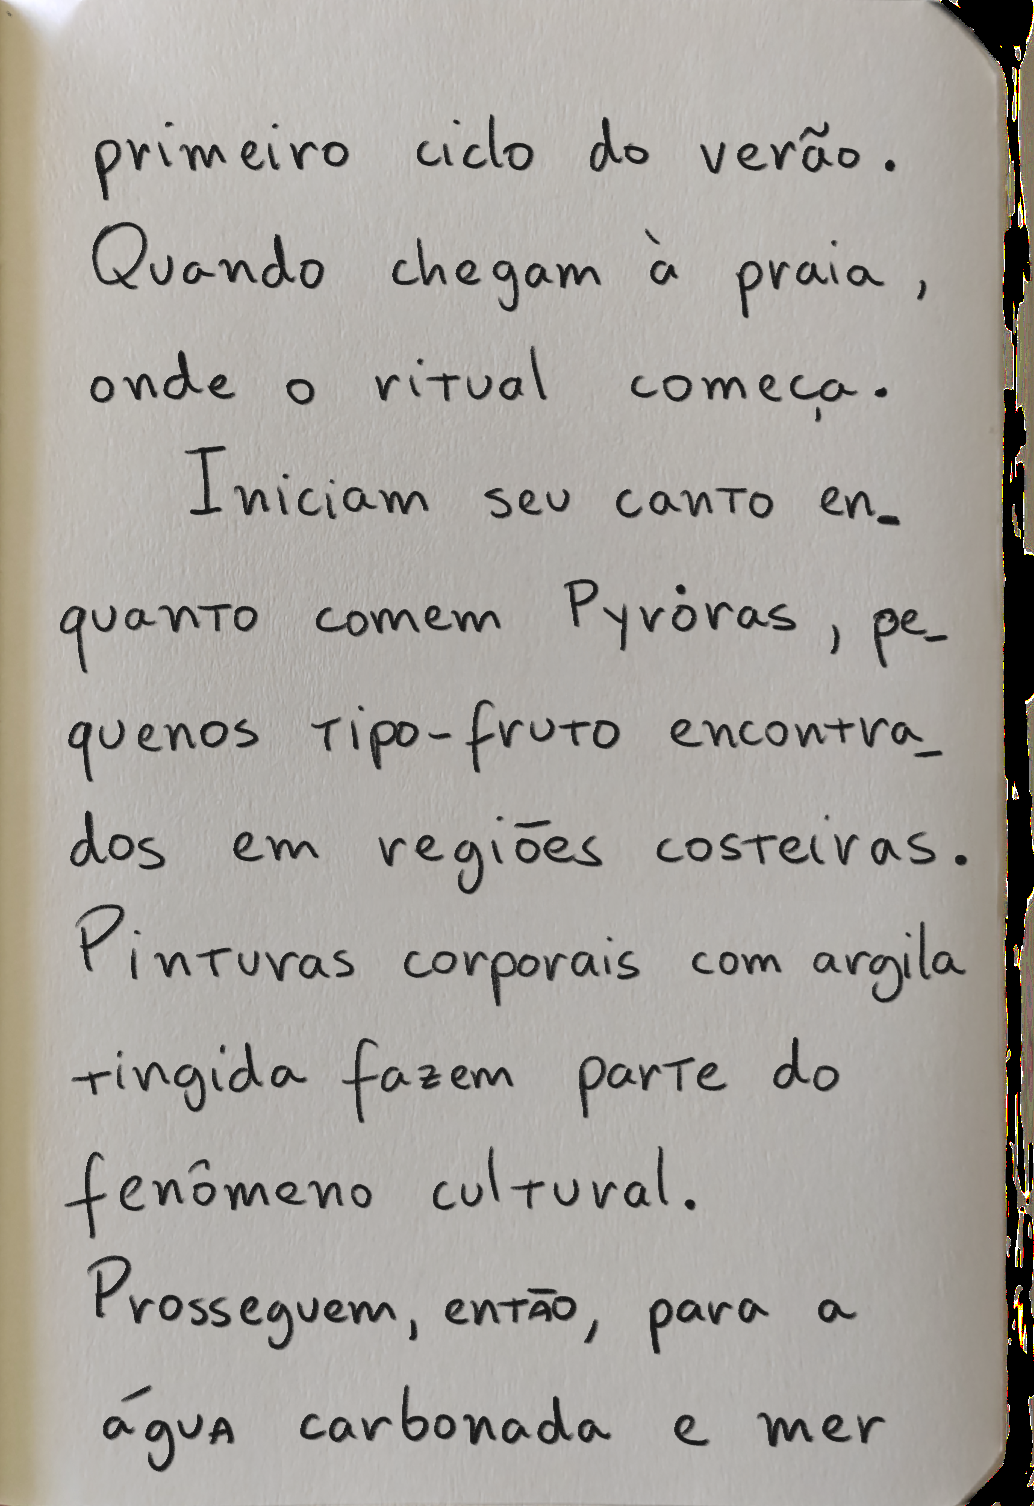 primeiro ciclo do verão.
Quando chegam à praia,
onde o ritual começa.
Iniciam seu canto en-
quanto comem Pyrȯras, pe-
quenos tipo-fruto encontra-
dos em regiões costeiras.
Pinturas corporais com argila
tingida fazem parte do
fenômeno cultural.
Prosseguem, então, para a
água carbonada e mer